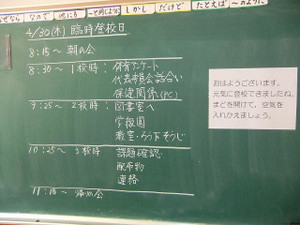 なぜなら
なので
他にも
しかし
だけど
たとえば
〜のように
4/30(木) 臨時登校日
8:15〜 朝の会
8:30〜 1校時:
保健関係(PC)
9:25〜 2校時: 図書室へ
学級園
教室・ろう下そうじ
10:25〜 3校時 課題確認
配布物
連絡
11:10〜 帰りの会
おはようございます。
元気に登校できましたね。
まどを開けて、空気を
入れかえましょう。